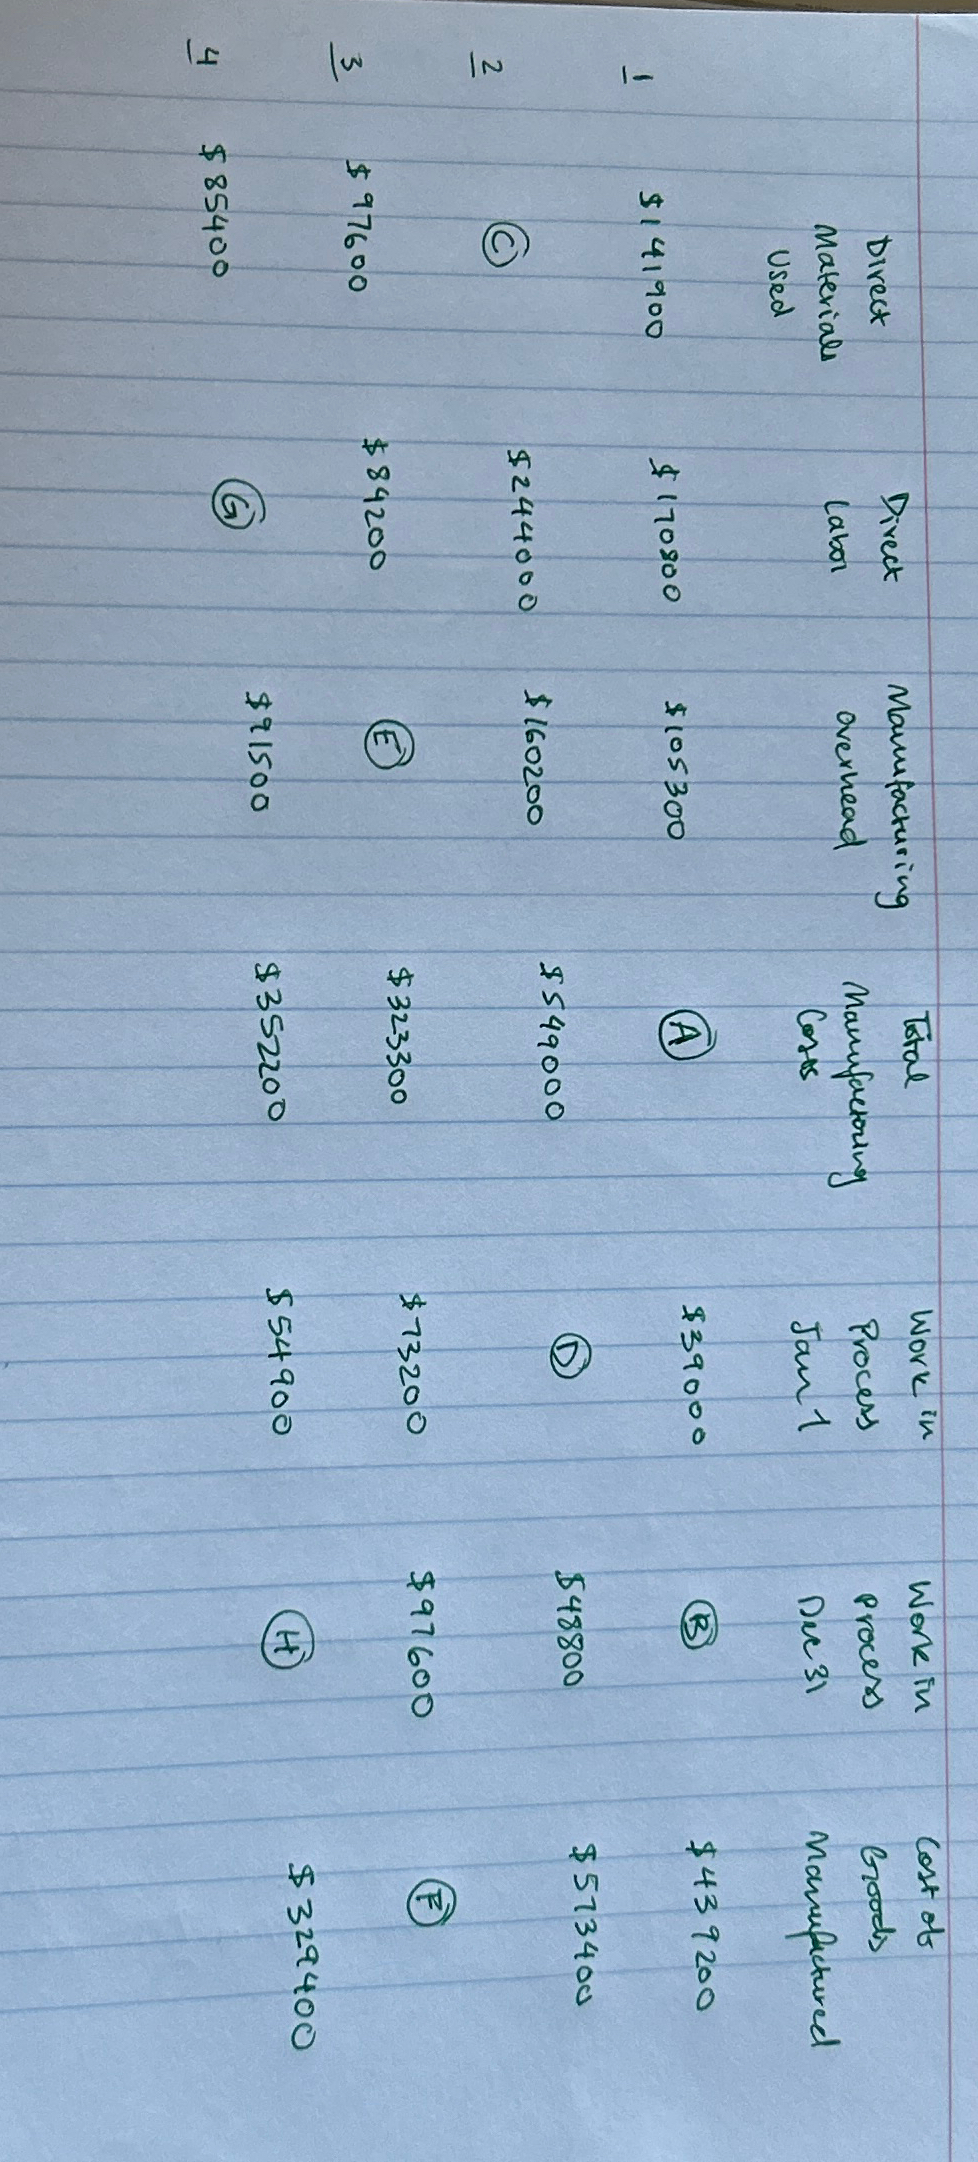 Direct Materials Used	Direct Labor	Manufacturing overhead	Total Manufacturing Costs	Work in Process Jan 1	Work in Process Dec 31	Cost of Goods Manufactured
1	$141900	$170800	$105300	A	$39000	B	$439200
2	C	$244000	$160200	$549000	D	$48800	$573400
3	$97600	$89200	E	$323300	$73200	$97600	F
4	$85400	G	$91500	$352200	$54900	H	$329400